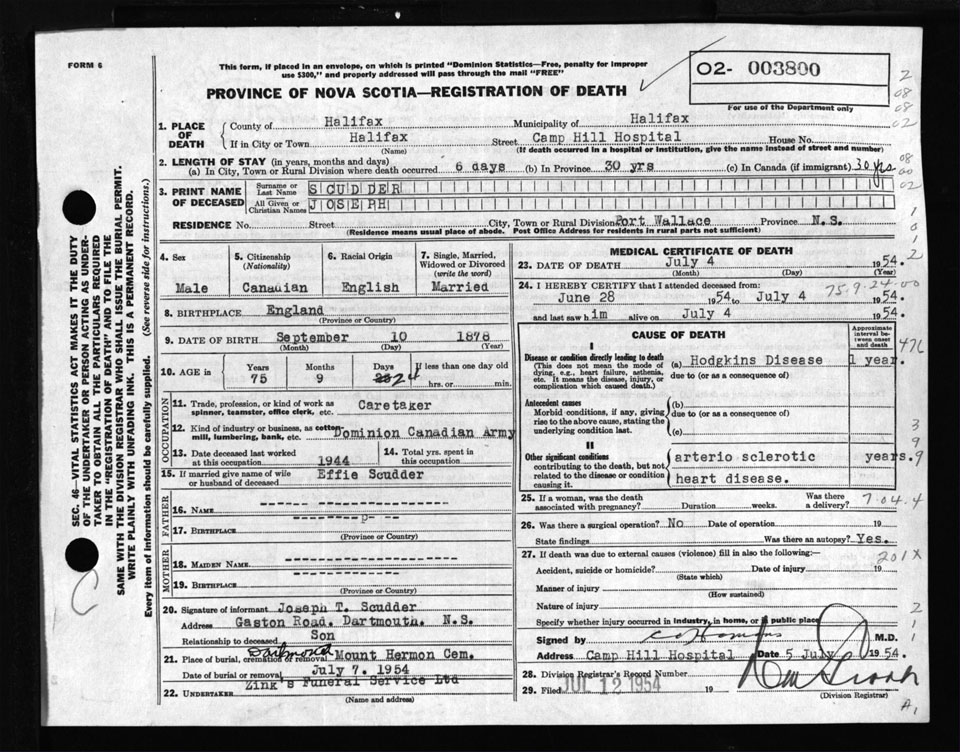 FORM 6
This form, if placed in an envelope, on which is printed "Dominion Statistics—Free, penalty for improper
use $300," and properly addressed will pass through the mail "FREE"
PROVINCE OF NOVA SCOTIA—REGISTRATION OF DEATH
02- 003800
For use of the Department only
1. PLACE OF DEATH
County of Halifax Municipality of Halifax
If in City or Town Halifax Street Camp Hill Hospital House No.
(Name) (If death occurred in a hospital or institution, give the name instead of street and number)
2. LENGTH OF STAY (in years, months and days)
(a) In City, Town or Rural Division where death occurred 6 days (b) In Province 30 yrs (c) In Canada (if immigrant) 30 yrs.
3. PRINT NAME OF DECEASED
Surname or Last Name SCUDDER
All Given or Christian Names JOSEPH
RESIDENCE No. Street City, Town or Rural Division Port Wallace Province N.S.
(Residence means usual place of abode. Post Office Address for residents in rural parts not sufficient)
4. Sex
Male
5. Citizenship
(Nationality)
Canadian
6. Racial Origin
English
7. Single, Married,
Widowed or Divorced
(write the word)
Married
8. BIRTHPLACE England
(Province or Country)
9. DATE OF BIRTH September 10 1878
(Month) (Day) (Year)
10. AGE in Years Months Days If less than one day old
75 9 hrs. or min.
OCCUPATION
11. Trade, profession, or kind of work as
spinner, teamster, office clerk, etc. Caretaker
12. Kind of industry or business, as cotton
mill, lumbering, bank, etc. Dominion Canadian Army
13. Date deceased last worked
at this occupation 1944
14. Total yrs. spent in
this occupation
15. If married give name of wife
or husband of deceased Effie Scudder
FATHER
16. NAME
17. BIRTHPLACE
(Province or Country)
MOTHER
18. MAIDEN NAME
19. BIRTHPLACE
(Province or Country)
20. Signature of informant Joseph T. Scudder
Address Gaston Road. Dartmouth. N.S.
Relationship to deceased Son
21. Place of burial, cremation or removal Dartmouth Mount Hermon Cem.
Date of burial or removal July 7. 1954
22. UNDERTAKER Zink's Funeral Service Ltd
(Name and address)
MEDICAL CERTIFICATE OF DEATH
23. DATE OF DEATH July 4 1954.
(Month) (Day) (Year)
24. I HEREBY CERTIFY that I attended deceased from: 75-9-24-00
June 28 1954 to July 4 1954.
and last saw him alive on July 4 1954.
CAUSE OF DEATH
Approximate interval between onset and death
476
I
Disease or condition directly leading to death
(This does not mean the mode of
dying, e.g., heart failure, asthenia,
etc. It means the disease, injury, or
complication which caused death.)
(a) Hodgkins Disease 1 year.
due to (or as a consequence of)
Antecedent causes
Morbid conditions, if any, giving
rise to the above cause, stating the
underlying condition last.
(b)
due to (or as a consequence of)
(c)
II
Other significant conditions
contributing to the death, but not
related to the disease or condition
causing it.
arterio sclerotic years.
heart disease.
25. If a woman, was the death
associated with pregnancy? Duration weeks. Was there a delivery? 7-04.4
26. Was there a surgical operation? No Date of operation 19
State findings Was there an autopsy? Yes.
27. If death was due to external causes (violence) fill in also the following:—
201X
Accident, suicide or homicide? Date of injury 19
(State which)
Manner of injury
(How sustained)
Nature of injury
Specify whether injury occurred in industry, in home, or in public place
Signed by M.D.
Address Camp Hill Hospital Date 5 July 1954.
28. Division Registrar's Record Number
29. Filed JUL 12 1954 19
(Division Registrar)
SEC. 46—VITAL STATISTICS ACT MAKES IT THE DUTY
OF THE UNDERTAKER OR PERSON ACTING AS UNDER-
TAKER TO OBTAIN ALL THE PARTICULARS REQUIRED
IN THE "REGISTRATION OF DEATH" AND TO FILE THE
SAME WITH THE DIVISION REGISTRAR WHO SHALL ISSUE THE BURIAL PERMIT.
WRITE PLAINLY WITH UNFADING INK. THIS IS A PERMANENT RECORD.
Every item of information should be carefully supplied. (See reverse side for instructions.)
C